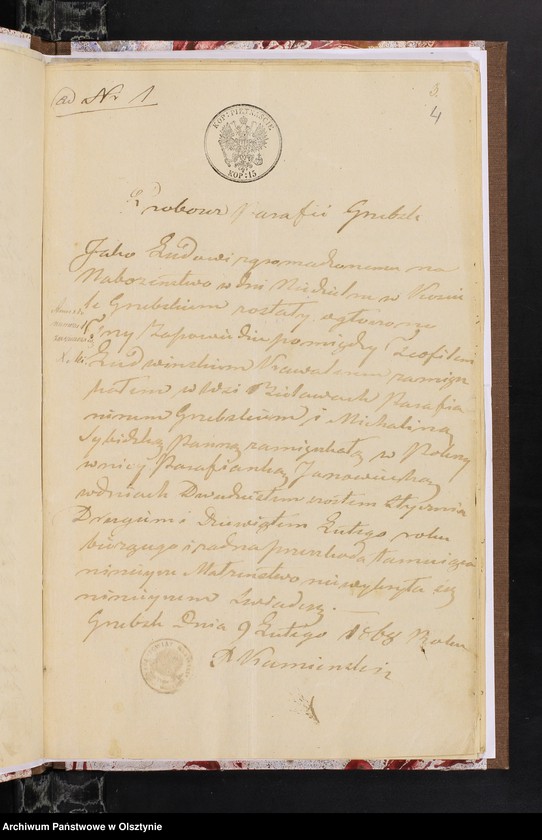 ad Nr 1
4
KOP: PIĘTNAŚCIE
KOP: 15
Proboszcz Parafii Grzebsk
Jako Ludowi zgromadzonemu na
Nabożeństwo w dni Niedzielne w Kościele
Grzebskiem zostały ogłoszone
Trzy Zapowiedzie pomiędzy Teofilem
Ludwinskiem Kawalerem zamiesz
kałem w wsi Parafia
ninem Grzebskiem, i Michaliną
Panną zamieszkałą w
Parafianką Janowiecką
w dniach Dwudziestem szóstem Stycznia
Drugiem i Dziewiątem Lutego roku
bieżącego i żadna przeszkoda tamująca
niniejsze Małżeństwo niewykryła się
niniejszem świadczę.
Grzebsk Dnia 9 Lutego 1868 Roku
X. Kamienski
Archiwum Państwowe w Olsztynie